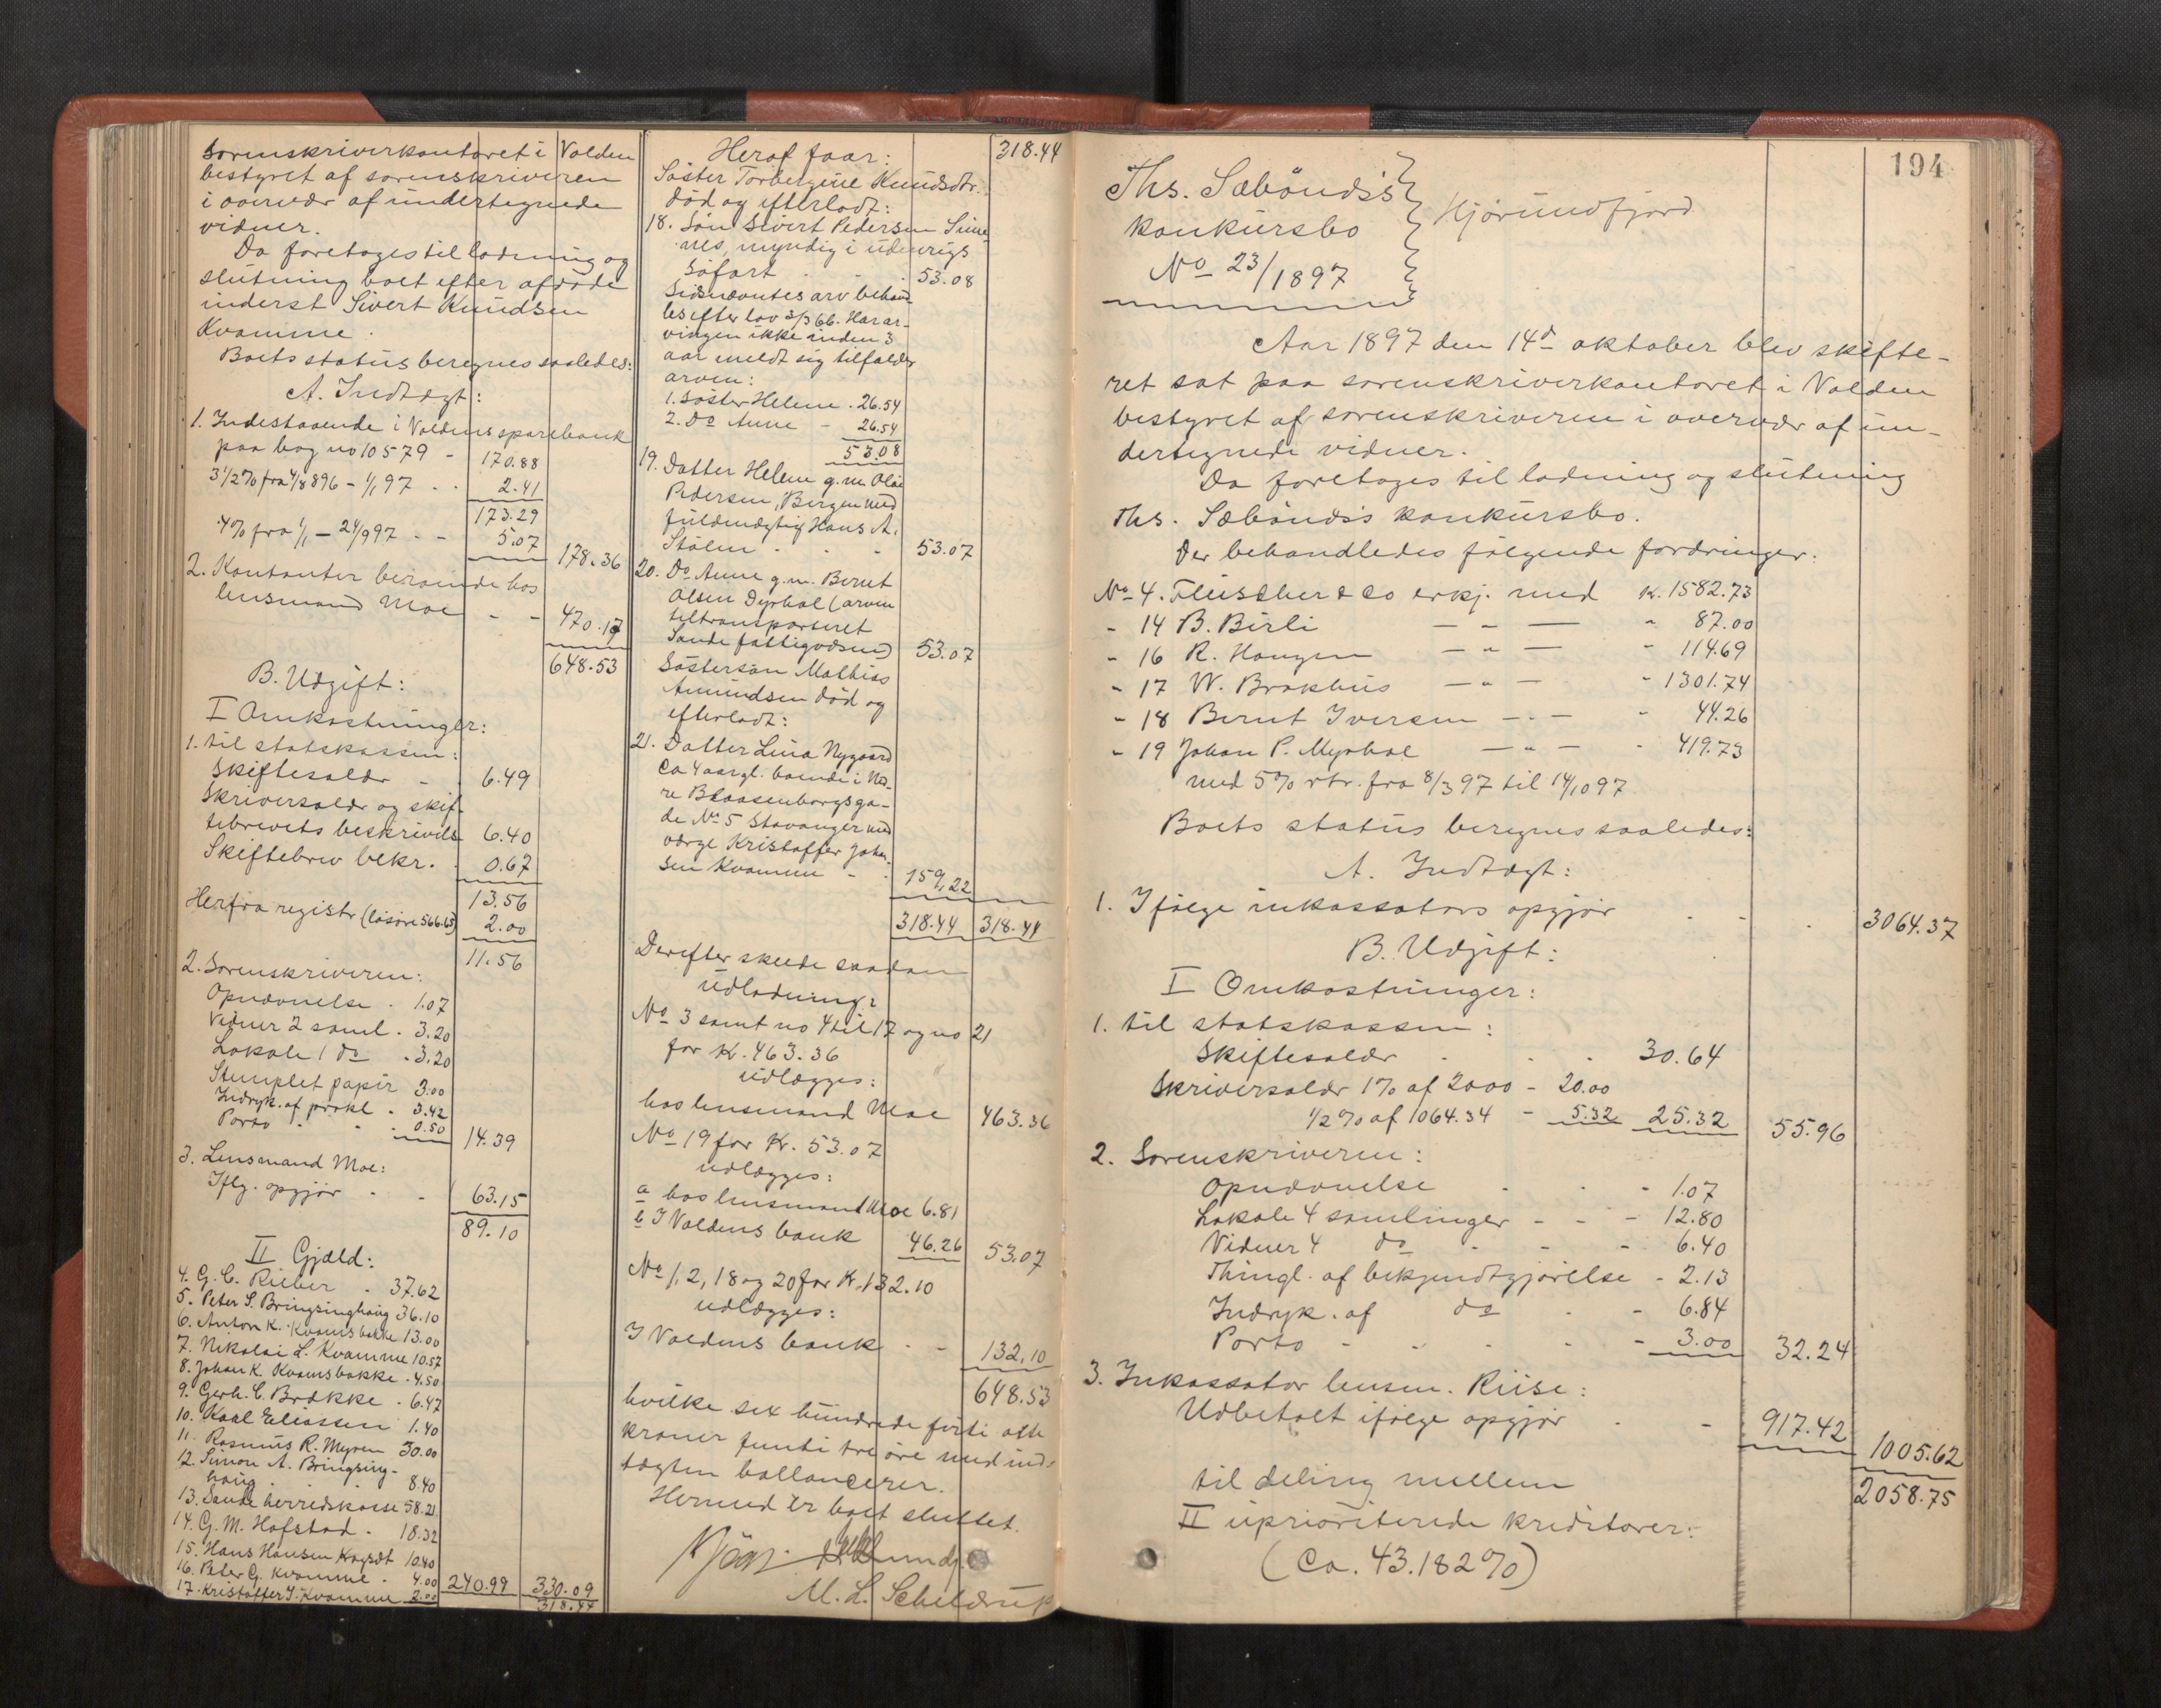 Sorenskriverkontoret i Volden
bestyret af sorenskriveren
i overvær af undertegnede
vidner.
Da foretoges til lodning og
slutning boet efter afdøde
inderst Sivert Knudsen
Kvamme.
Boets status beregnes saaledes:
A. Indtægt:
1. Indestaaende i Voldens sparebank
paa bog no 10579 - 170.88
3 1/2 % fra 4/8 96 - 1/1 97 . . 2.41
173.29
4% fra 1/1 - 24/9 97 . - 5.07 178.36
2. Kontanter beroende hos
lensmand Moe - - 470.17
648.53
B. Udgift:
I Omkostninger:
1. til statskassen:
Skiftesalær - . 6.49
Skriversalær og skif-
tebrevets beskrivels 6.40
Skiftebrev bekr. . 0.67
13.56
Herfra registr (løsøre 566.63) 2.00
11.56
2. Sorenskriveren:
Opnævnelse . 1.07
Vidner 2 saml. . 3.20
Lokale 1 do . 3.20
Stemplet papir 3.00
Indryk. af prokl. . 3.42
Porto . . . 0.50 14.39
3. Lensmand Moe:
Iflg. opgjør . - 63.15
89.10
II Gjæld:
4. G. C. Rieber . 37.62
5. Peter S. Bringsinghaug 36.10
6. Anton K. Kvamsbakke 13.00
7. Nikolai L. Kvamme 10.57
8. Johan K. Kvamsbakke . 4.50
9. Gerh. C. Brække . 6.47
10. Karl Eliassen 1.40
11. Rasmus R. Myren 30.00
12. Simon A. Bringsing-
haug . 8.40
13. Sande herredskasse 58.21
14. G. M. Hofstad . 18.32
15. Hans Hansen 10.40
16. Peter G. Kvamme . 4.00 240.99 330.09
17. Kristoffer J. Kvamme 2.00 318.44
Heraf faar: 318.44
Søster Torbergine Knudsdtr.
død og efterladt:
18. Søn Sivert Pedersen Sime-
nes, myndig i udenrigs
søfart . . . 53.08
Sidsnævntes arv behand-
les efter lov 3/3 66. Har ar-
vingen ikke inden 3
aar meldt sig tilfalder
arven:
1. søster Helene . 26.54
2. Do Anne - 26.54
53.08
19. Datter Helene g. m. Ole
Pedersen, Bergen med
fuldmægtig Hans A.
Stølen . . - 53.07
20. Do Anne g. m. Bernt
Olsen Dyrhol (arven
tiltransporteret
Sande fattigvæsen) 53.07
Søstersøn Mathias
Amundsen død og
efterladt:
21. Datter Lina Nygaard
ca 4 aar gl. boende i Ned-
re Blaasenborgsga-
de No 5 Stavanger med
værge Kristoffer Johan-
sen Kvamme - . 159,22
318.44 318.44
Derefter skeede saadan
udlodning:
No 3 samt no 4 til 17 og no 21
for K. 463.36
udlægges:
hos lensmand Moe 463.36
No 19 for Kr. 53.07
udlægges:
a hos lensmand Moe 6.81
b I Voldens bank 46.26 53.07
No 1, 2, 18 og 20 for Kr. 132.10
udlægges:
I Voldens bank . - 132,10
648.53
hvilke sex hundrede førti otte
kroner femti tre øre med ind-
tægten ballancerer.
Hermed er boet sluttet.
M. L. Scheldrup
194
Ths. Sæbønds's
konkursbo Hjørundfjord
No 23/1897
Aar 1897 den 14d oktober blev skifte-
ret sat paa sorenskriverkontoret i Volden
bestyret af sorenskriveren i overvær af un-
dertegnede vidner.
Da foretoges til lodning og slutning
Ths. Sæbønds's konkursbo.
Der behandledes følgende fordringer:
No 4. Fleischer & Co erkj. med K. 1582.73
- 14 B. Birli — " — " 87.00
- 16 R. Haugen — " — " 114.69
- 17 W. Brakhus — " — " 1301.74
- 18 Bernt Iversen — " — " 44.26
- 19 Johan P. Myrhol — " — " 419.73
med 5% rtr. fra 8/3 97 til 14/10 97
Boets status beregnes saaledes:
A. Indtægt:
1. Ifølge inkassators opgjør . - . 3064.37
B. Udgift:
I Omkostninger:
1. til statskassen:
Skiftesalær . . . 30.64
Skriversalær 1% af 2000 - 20.00
1/2 % af 1064.34 - 5.32 25.32 55.96
2. Sorenskriveren:
Opnævnelse . . - 1.07
Lokale 4 samlinger - - - 12.80
Vidner 4 do . - - 6.40
Thingl. af bekjendtgjørelse - 2.13
Indryk. af do . - 6.84
Porto - . . . - 3.00 32.24
3. Inkassator lensm. Riise:
Udbetalt ifølge opgjør . - 917.42 1005.62
til deling mellem 2058.75
II uprioriterede kreditorer:
(ca. 43.182%)